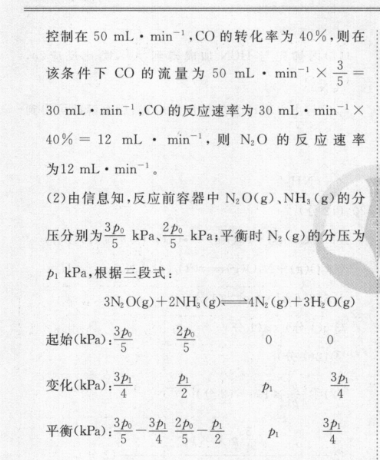 控制在 50 mL·min⁻¹,CO 的转化率为 40%,则在
该条件下 CO 的流量为 50 mL·min⁻¹×3/5=
30 mL·min⁻¹,CO 的反应速率为 30 mL·min⁻¹×
40%=12 mL·min⁻¹,则 N₂O 的反应速率
为12 mL·min⁻¹。
(2)由信息知,反应前容器中 N₂O(g)、NH₃(g)的分
压分别为3p₀/5 kPa、2p₀/5 kPa;平衡时 N₂(g)的分压为
p₁ kPa,根据三段式:
3N₂O(g)+2NH₃(g)⇌4N₂(g)+3H₂O(g)
起始(kPa):3p₀/5 2p₀/5 0 0
变化(kPa):3p₁/4 p₁/2 p₁ 3p₁/4
平衡(kPa):3p₀/5-3p₁/4 2p₀/5-p₁/2 p₁ 3p₁/4